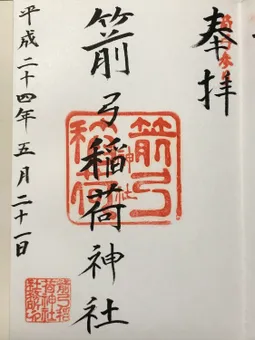 奉拝
箭弓稲荷神社
平成二十四年五月二十一日
箭弓
稲荷
神社